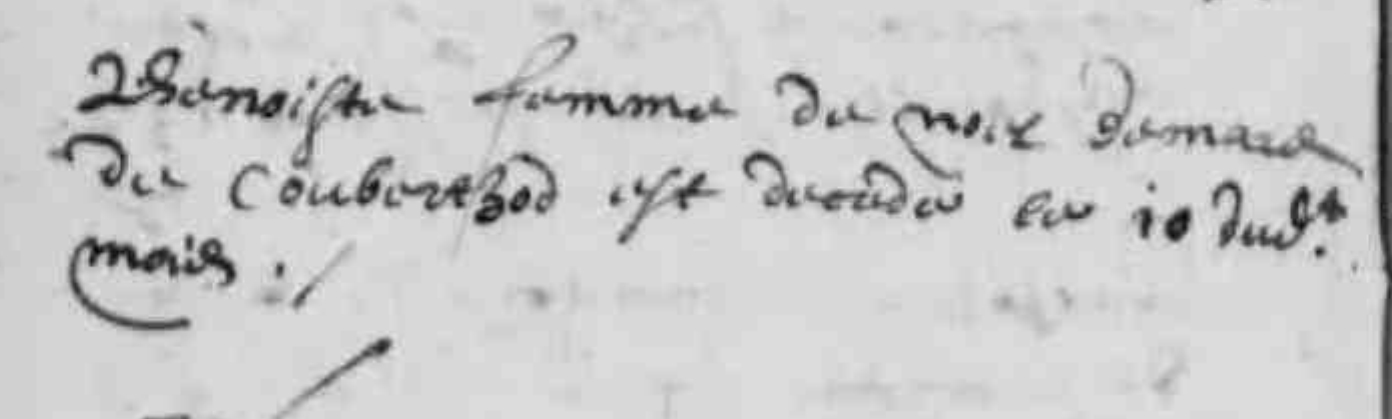 Thenoiste femme de noel Demard
de Couberthod est decedee le 10 dud.t
mois ./